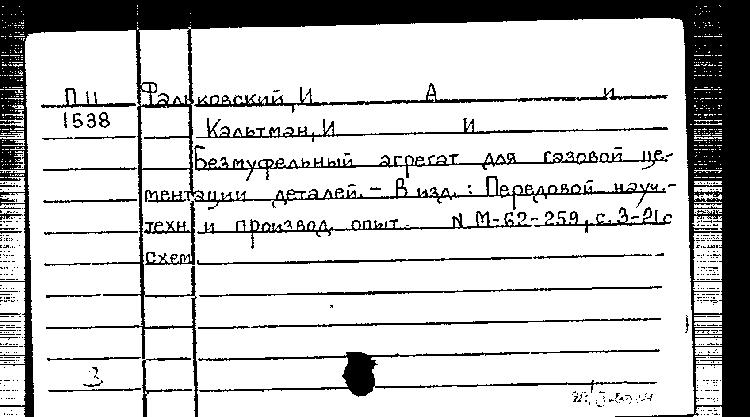 П 11 Фальковский, И А и
1538 Кальтман, И И
Безмуфельный агрегат для газовой це-
ментации деталей. - В изд.: Передовой науч.-
техн. и производ. опыт. N М-62-259, с. 3-21 с
схем.
3